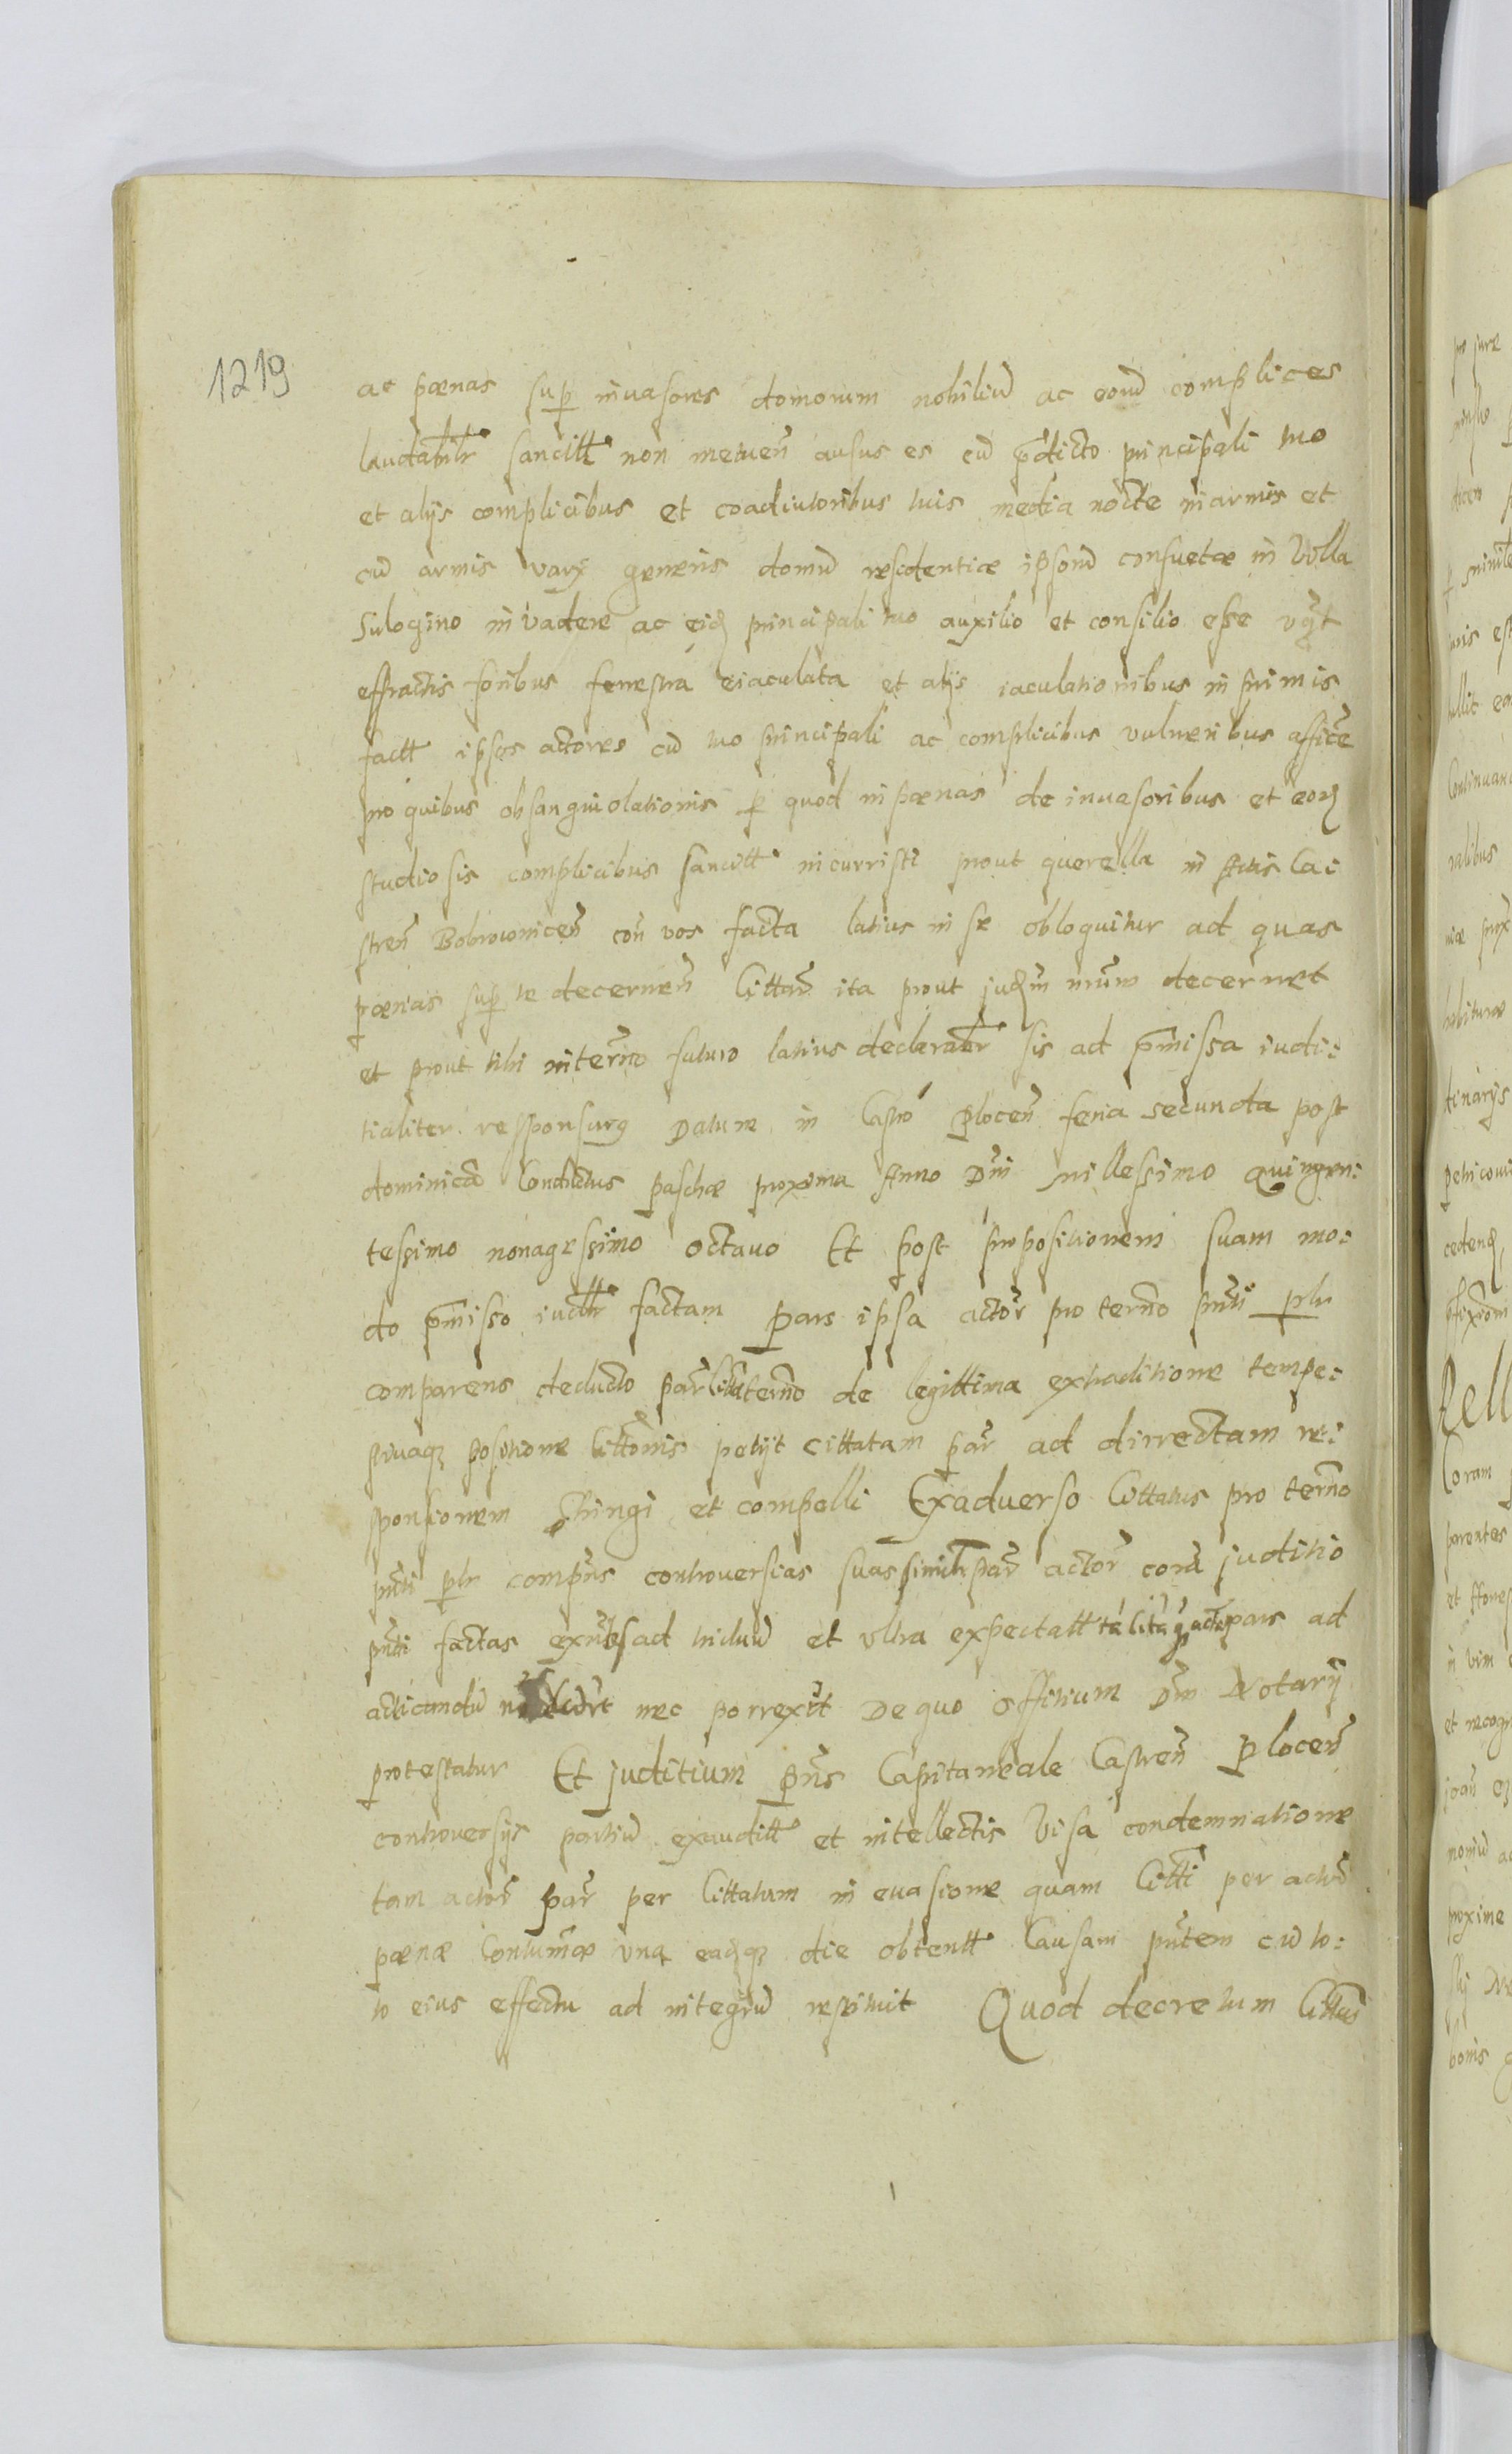 1219
ac pœnas sup invasores domorum nobiliũ ac eorũ complices
laudablr sancitt non metueñ ausus es cũ p̃dicto principali tuo
et alijs complicibus et coadiutoribus tuis media nocte in armis et
cũ armis varij generis domũ residentiæ ipsorũ consuetæ in Villa
Sulogino invadere ac eidẽ principali tuo auxilio et consilio esse vt
effractis foribus fenestra eiaculata et alijs iaculationibus in primis
factt ipsos actores cũ tuo principali ac complicibus vulneribus affice
pro quibus obsanguiolationis p quod in pœnas de invasoribus et eorũ
studiosis complicibus sancitt incurristi prout querella in Actis Ca:
streñ Bobrowniceñ coñ vos facta latius in se obloquitur ad quas
pœnas sup te decerneñ Cittar̃ ita prout judm nrum decernet
et prout tibi in termo futuro latius declarabr sis ad p̃missa iudi:
tialiter responsurꝰ Datum in Castro Ploceñ feria secunda post
dominicã Conductus Paschæ proxima Anno Dni Millessimo Quingen:
tessimo nonagessimo octavo Et post propositionem suam mo:
do p̃misso iudtlr factam Pars ipsa actor̃ pro termo pnti plr
comparens deducto par termo de legittima extraditione tempe:
stivaqȝ positione cittõnis petijt cittatam par̃ ad dirrectam re:
sponsionem stringi et compelli Exadverso Cittatus pro termo
pnti plr compñs controversias suas simili par̃ actor̃ corã juditio
pnti factas ad triduũ et ultra expectatt pars ad
acticandũ nec porrexit De quo Offitium Dni Notarij
protestatur Et juditium pñs Capitaneale Castreñ Ploceñ
controversijs partiũ exauditt et intellectis Visa condemnatione
tam actor̃ par̃ per Cittatum in evasione quam Citti per actor̃
pœnæ Contumaẽ una eadqȝ die obtentt Causam pntem cũ to:
to eius effectu ad integrũ restituit Quod decretum Cittus